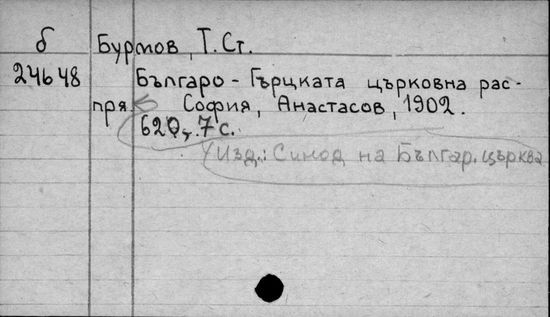 б Бурмов, Т. Ст.
24648 Българо - Гърцката църковна рас-
пря. София, Анастасов, 1902.
620, 7 с.
Изд.: Синод на Българ. църква